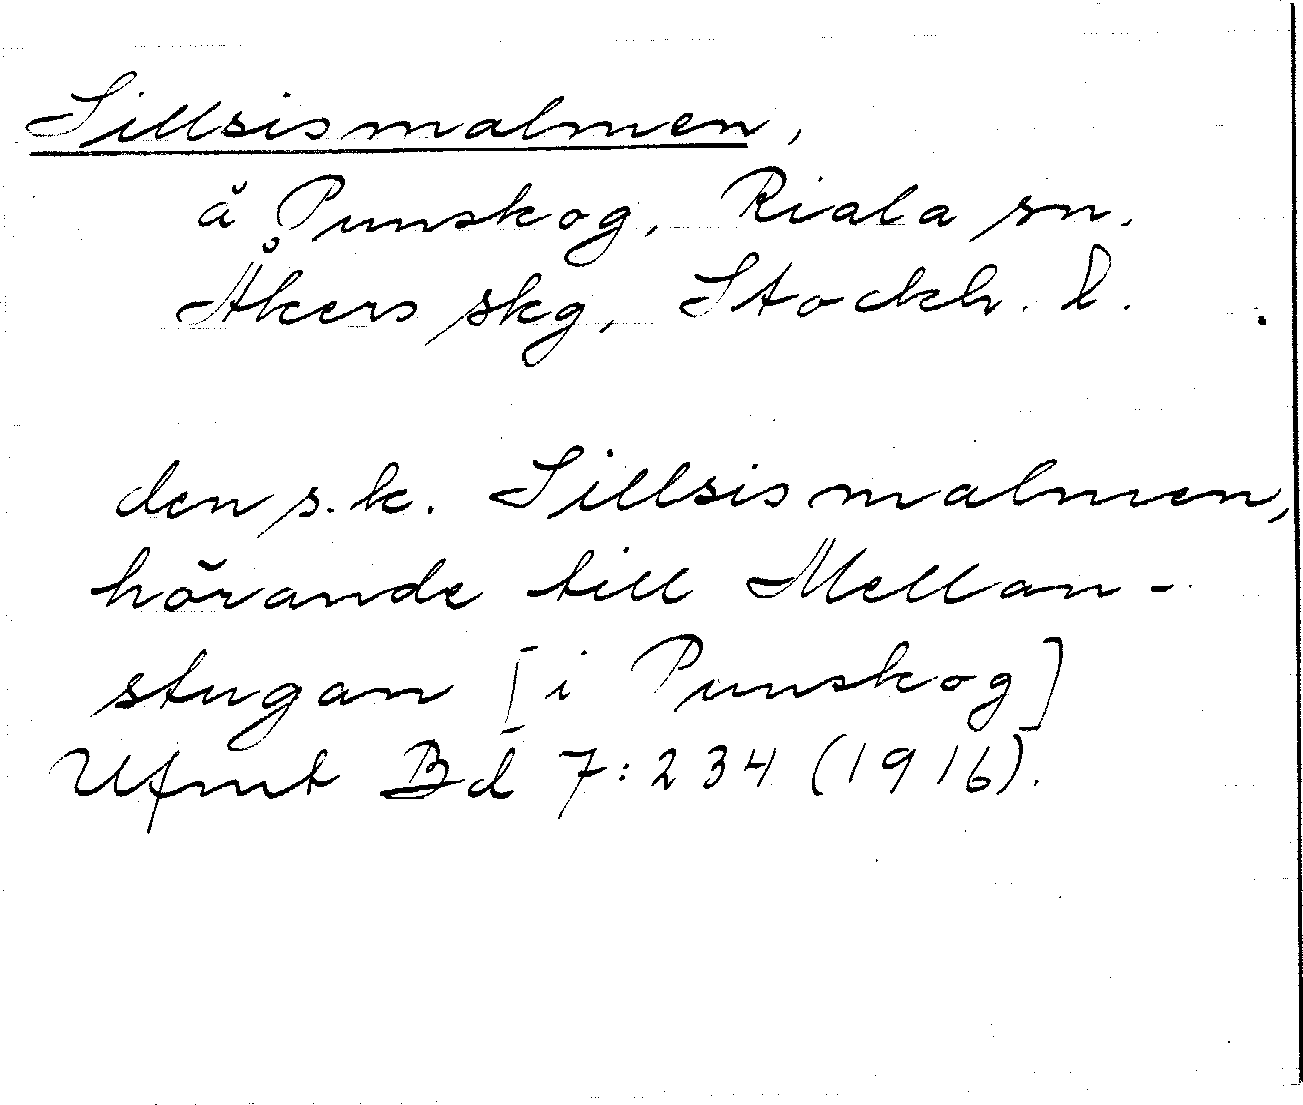 Sillsismalmen,
å Punskog, Riala sn.
Åkers skg, Stockh. l.
den s.k. Sillsismalmen,
hörande till Mellan-
stugan [i Punskog]
Ufmt Bd 7:234 (1916).